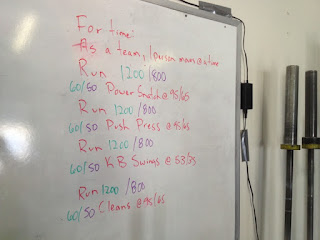 For time:
As a team, 1 person moves @ a time
Run 1200/800
60/50 Power Snatch @ 95/65
Run 1200/800
60/50 Push Press @ 95/65
Run 1200/800
60/50 KB Swings @ 53/35
Run 1200/800
60/50 Cleans @ 95/65